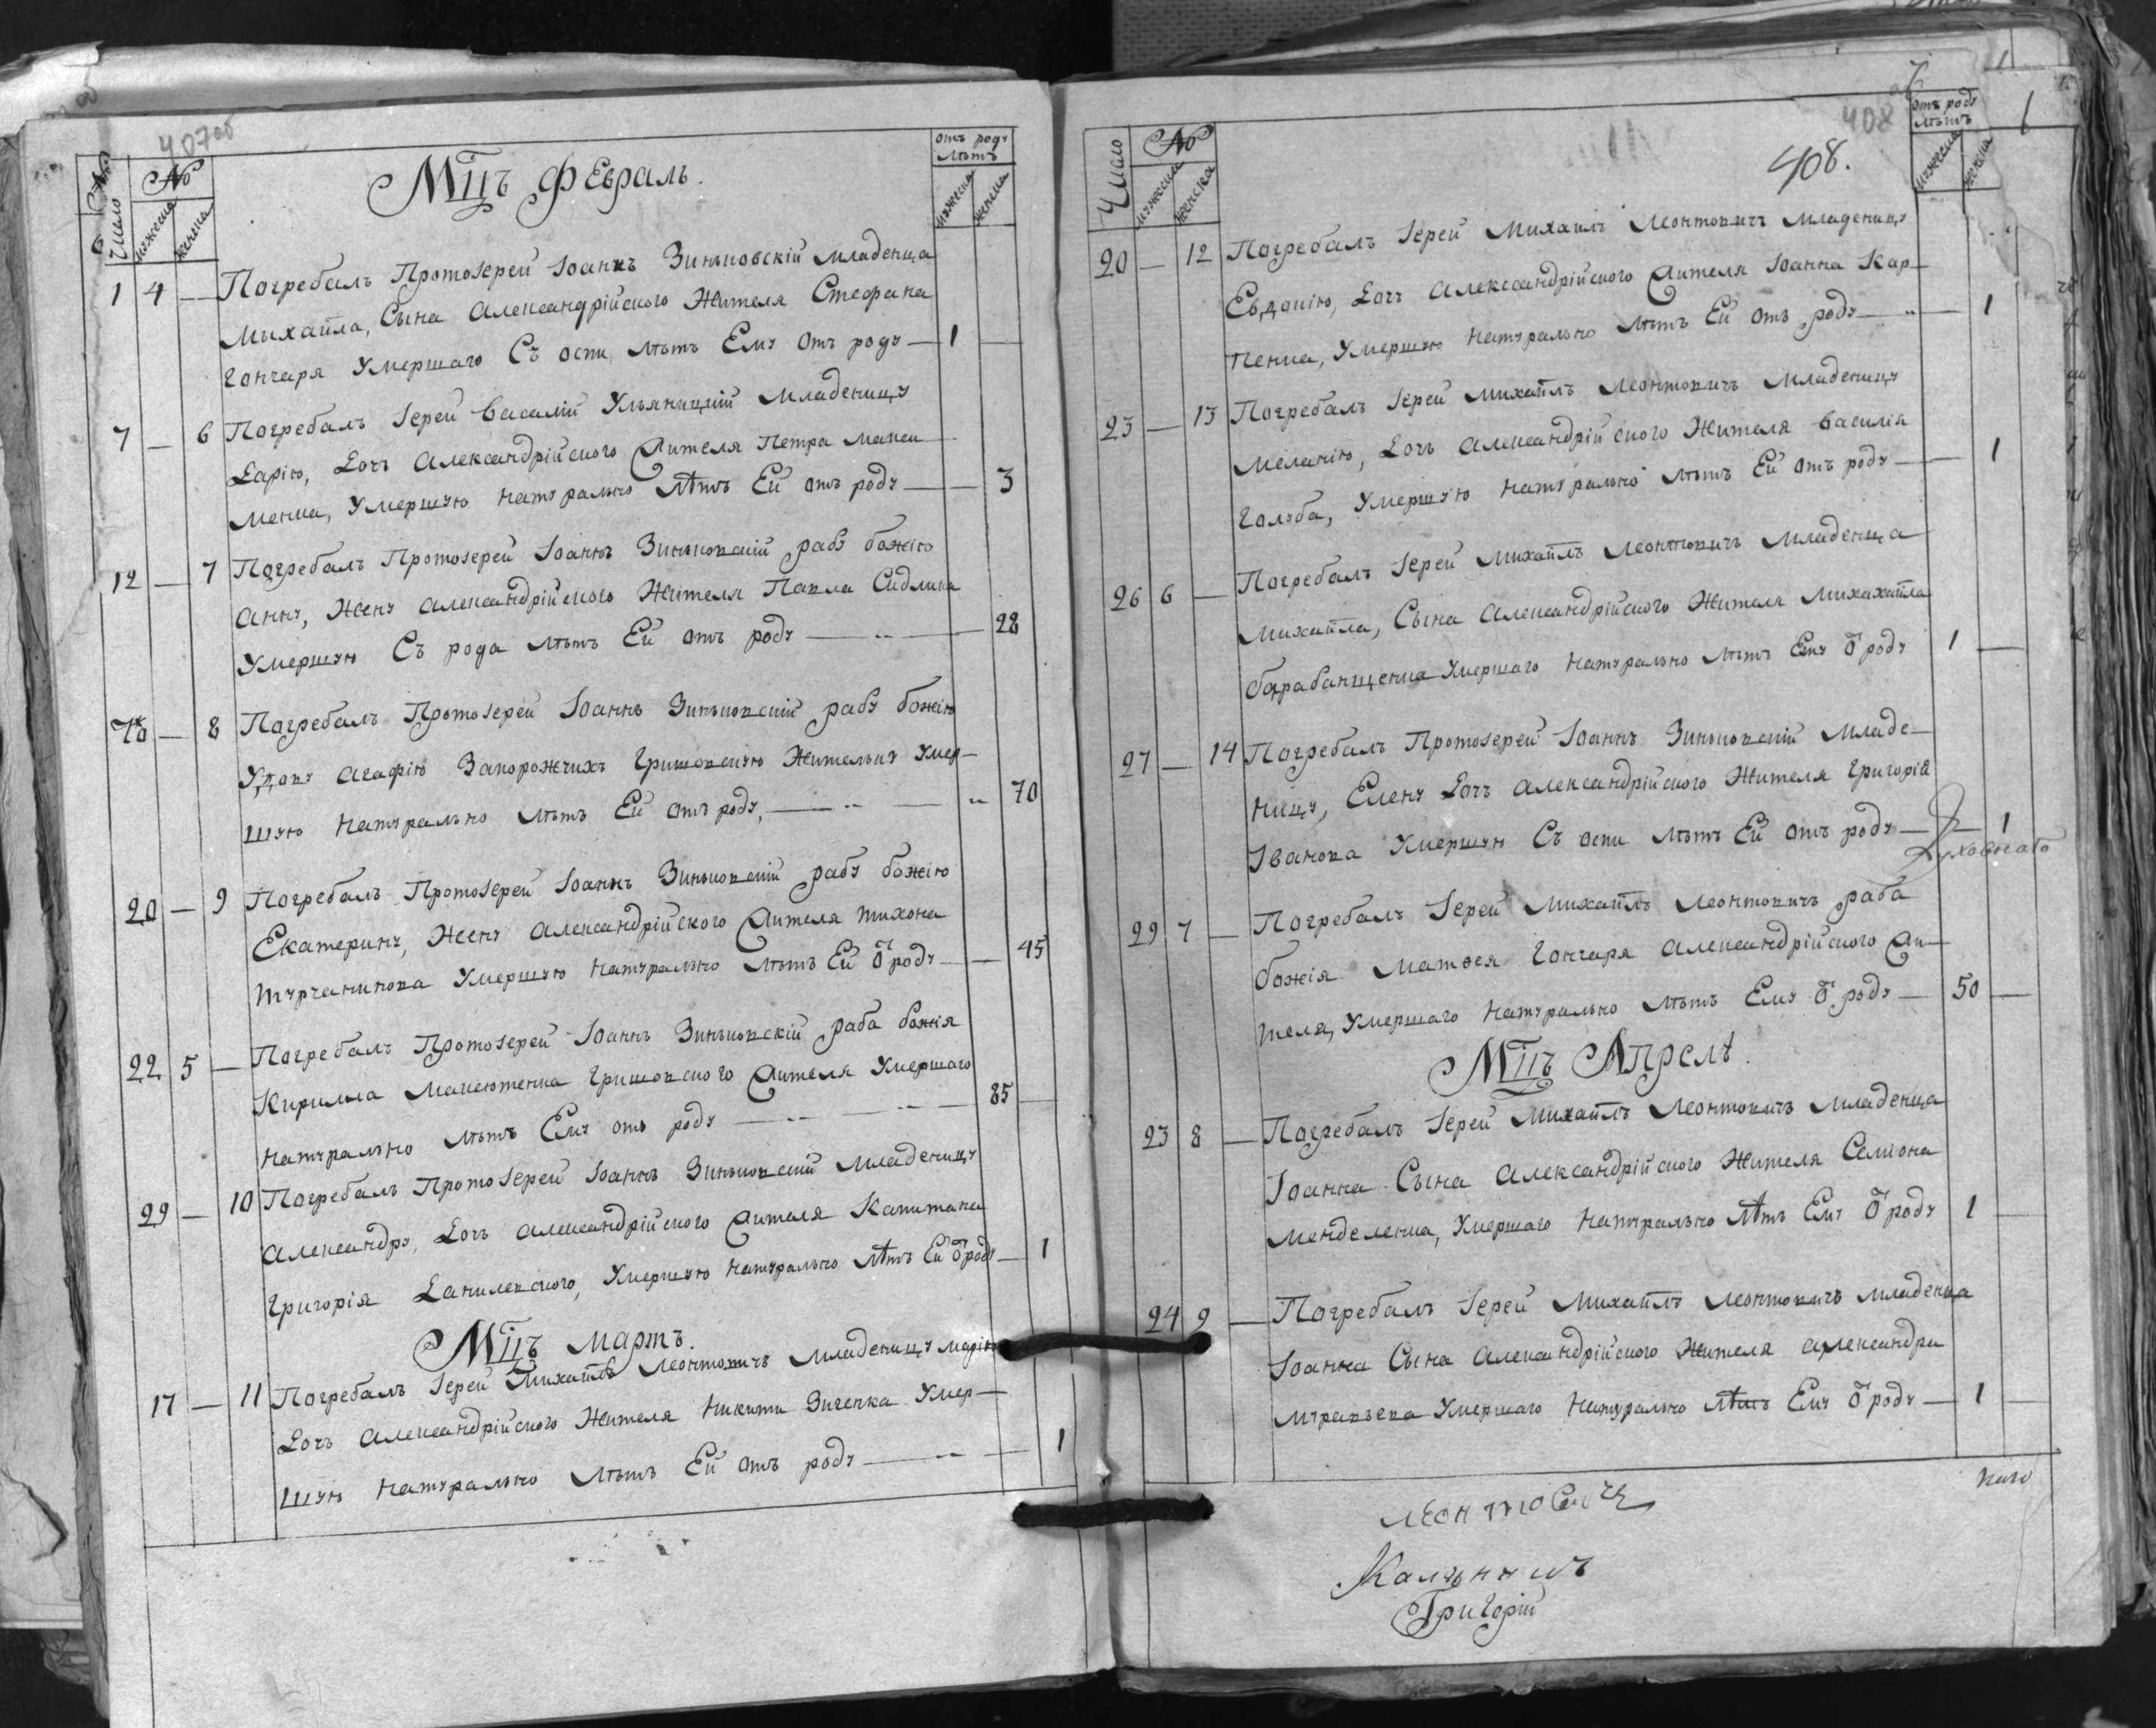 407 об
Число
№
мужеска
женска
Мцъ Февраль.
отъ роду
лѣтъ
мужеска
женска
1 4 — Погребалъ Протоіерей Іоаннъ Зиньковскій младенца
Михаила, Сына Александрійского Жителя Стефана
Гончаря Умершаго Съ оспи лѣтъ Ему отъ роду — 1 —
7 — 6 Погребалъ Іерей Василій Ульяницкій Младеницу
Дарію, Дочь Александрійского Жителя Петра Макси-
менка, Умершую натурально лѣтъ Ей отъ роду — — 3
12 — 7 Погребалъ Протоіерей Іоаннъ Зиньковскій рабу божію
Анну, Жену Александрійского Жителя Павла Сидлика
Умершую Съ рода лѣтъ Ей отъ роду — 28
— 8 Погребалъ Протоіерей Іоаннъ Зиньковскій рабу божію
Удову Агафію Запорожчиху Гришовскую Жительку Умер-
шую Натурально лѣтъ Ей отъ роду, — 70
20 — 9 Погребалъ Протоіерей Іоаннъ Зиньковскій рабу божію
Екатерину, Жену Александрійского Жителя Тихона
Турчанинова Умершую Натурально лѣтъ Ей ѿ роду — — 45
22 5 — Погребалъ Протоіерей Іоаннъ Зиньковскій раба божія
Кирилла Максютенка Гришовского Жителя Умершаго
Натурально лѣтъ Ему отъ роду — 85 —
29 — 10 Погребалъ Протоіерей Іоаннъ Зиньковскій Младеницу
Александру, Дочь Александрійского Жителя Капитана
Григорія Данилевского, Умершую Натурально лѣтъ Ей ѿ роду — 1
Мцъ Мартъ.
17 — 11 Погребалъ Іерей Михаилъ Леонтовичъ Младеницу Марію
Дочь Александрійского Жителя Никити Умер-
шую Натурально лѣтъ Ей отъ роду — 1
408
408.
Число
№
мужеска
женска
отъ роду
лѣтъ
мужеска
женска
20 — 12 Погребалъ Іерей Михаилъ Леонтовичъ Младеницу
Евдокію, Дочь Александрійского Жителя Іоанна Кар-
пенка, Умершую Натурально лѣтъ Ей отъ роду — 1
23 — 13 Погребалъ Іерей Михаилъ Леонтовичъ Младеницу
Меланію, Дочь Александрійского Жителя Василія
Голуба, Умершую Натурально лѣтъ Ей отъ роду — 1
26 6 — Погребалъ Іерей Михаилъ Леонтовичъ Младенца
Михаила, Сына Александрійского Жителя Михахаила
Барабанщенка Умершаго Натурально лѣтъ Ему ѿ роду 1 —
27 — 14 Погребалъ Протоіерей Іоаннъ Зиньковскій Младе-
ницу, Елену Дочь Александрійского Жителя Григорія
Іванова Умершую Съ оспи лѣтъ Ей отъ роду — 1
Духовнаго
29 7 — Погребалъ Іерей Михаилъ Леонтовичъ раба
божія Матѳея Гончаря Александрійского Жи-
теля, Умершаго Натурально лѣтъ Ему ѿ роду — 50 —
Мцъ Апрелѣ.
23 8 — Погребалъ Іерей Михаилъ Леонтовичъ Младенца
Іоанна Сына Александрійского Жителя Семіона
Менделенка, Умершаго Натурально лѣтъ Ему ѿ роду 1 —
24 9 — Погребалъ Іерей Михаилъ Леонтовичъ Младенца
Іоанна Сына Александрійского Жителя Александра
Муравьева Умершаго Натурально лѣтъ Ему ѿ роду — 1 —
Леонтовичъ
Григорій